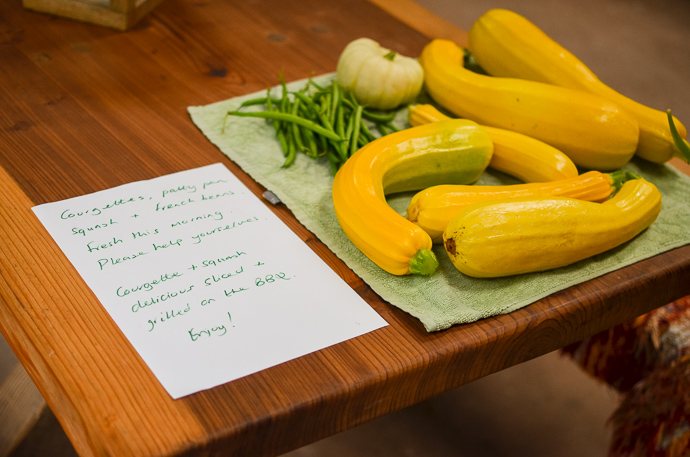 Courgettes, patty pan
squash + french beans
fresh this morning.
Please help yourselves.
Courgette + squash
delicious sliced +
grilled on the BBQ.
Enjoy!